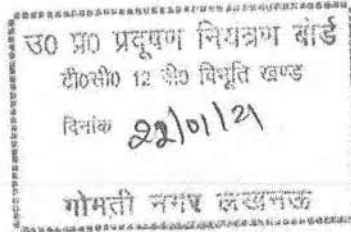 उ0 प्र0 प्रदूषण नियंत्रण बोर्ड
टी0सी0 12 वी0 विभूति खण्ड
दिनांक 22/01/21
गोमती नगर लखनऊ